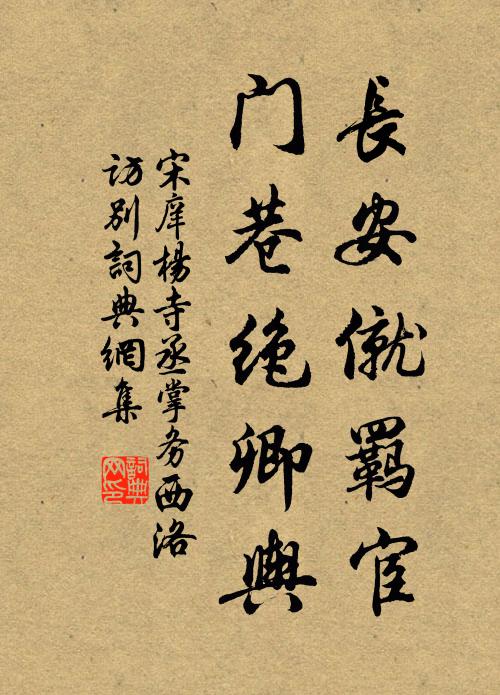 長安僦羈宦
门巷绝卿輿
宋庠楊寺丞掌务西洛
访别詞典網集
詞典
网印